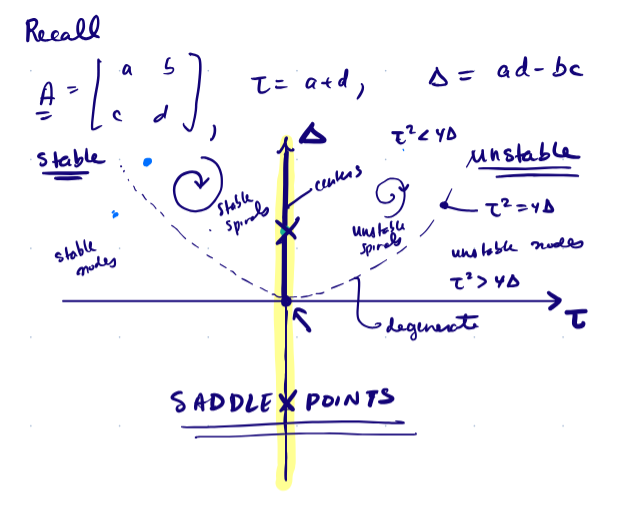 Recall
A = [ a b
c d ] , τ = a+d , Δ = ad-bc
stable
Δ
τ² < 4Δ
unstable
centers
stable
spirals
unstable
spirals
τ² = 4Δ
stable
nodes
unstable nodes
τ² > 4Δ
τ
degenerate
SADDLE POINTS